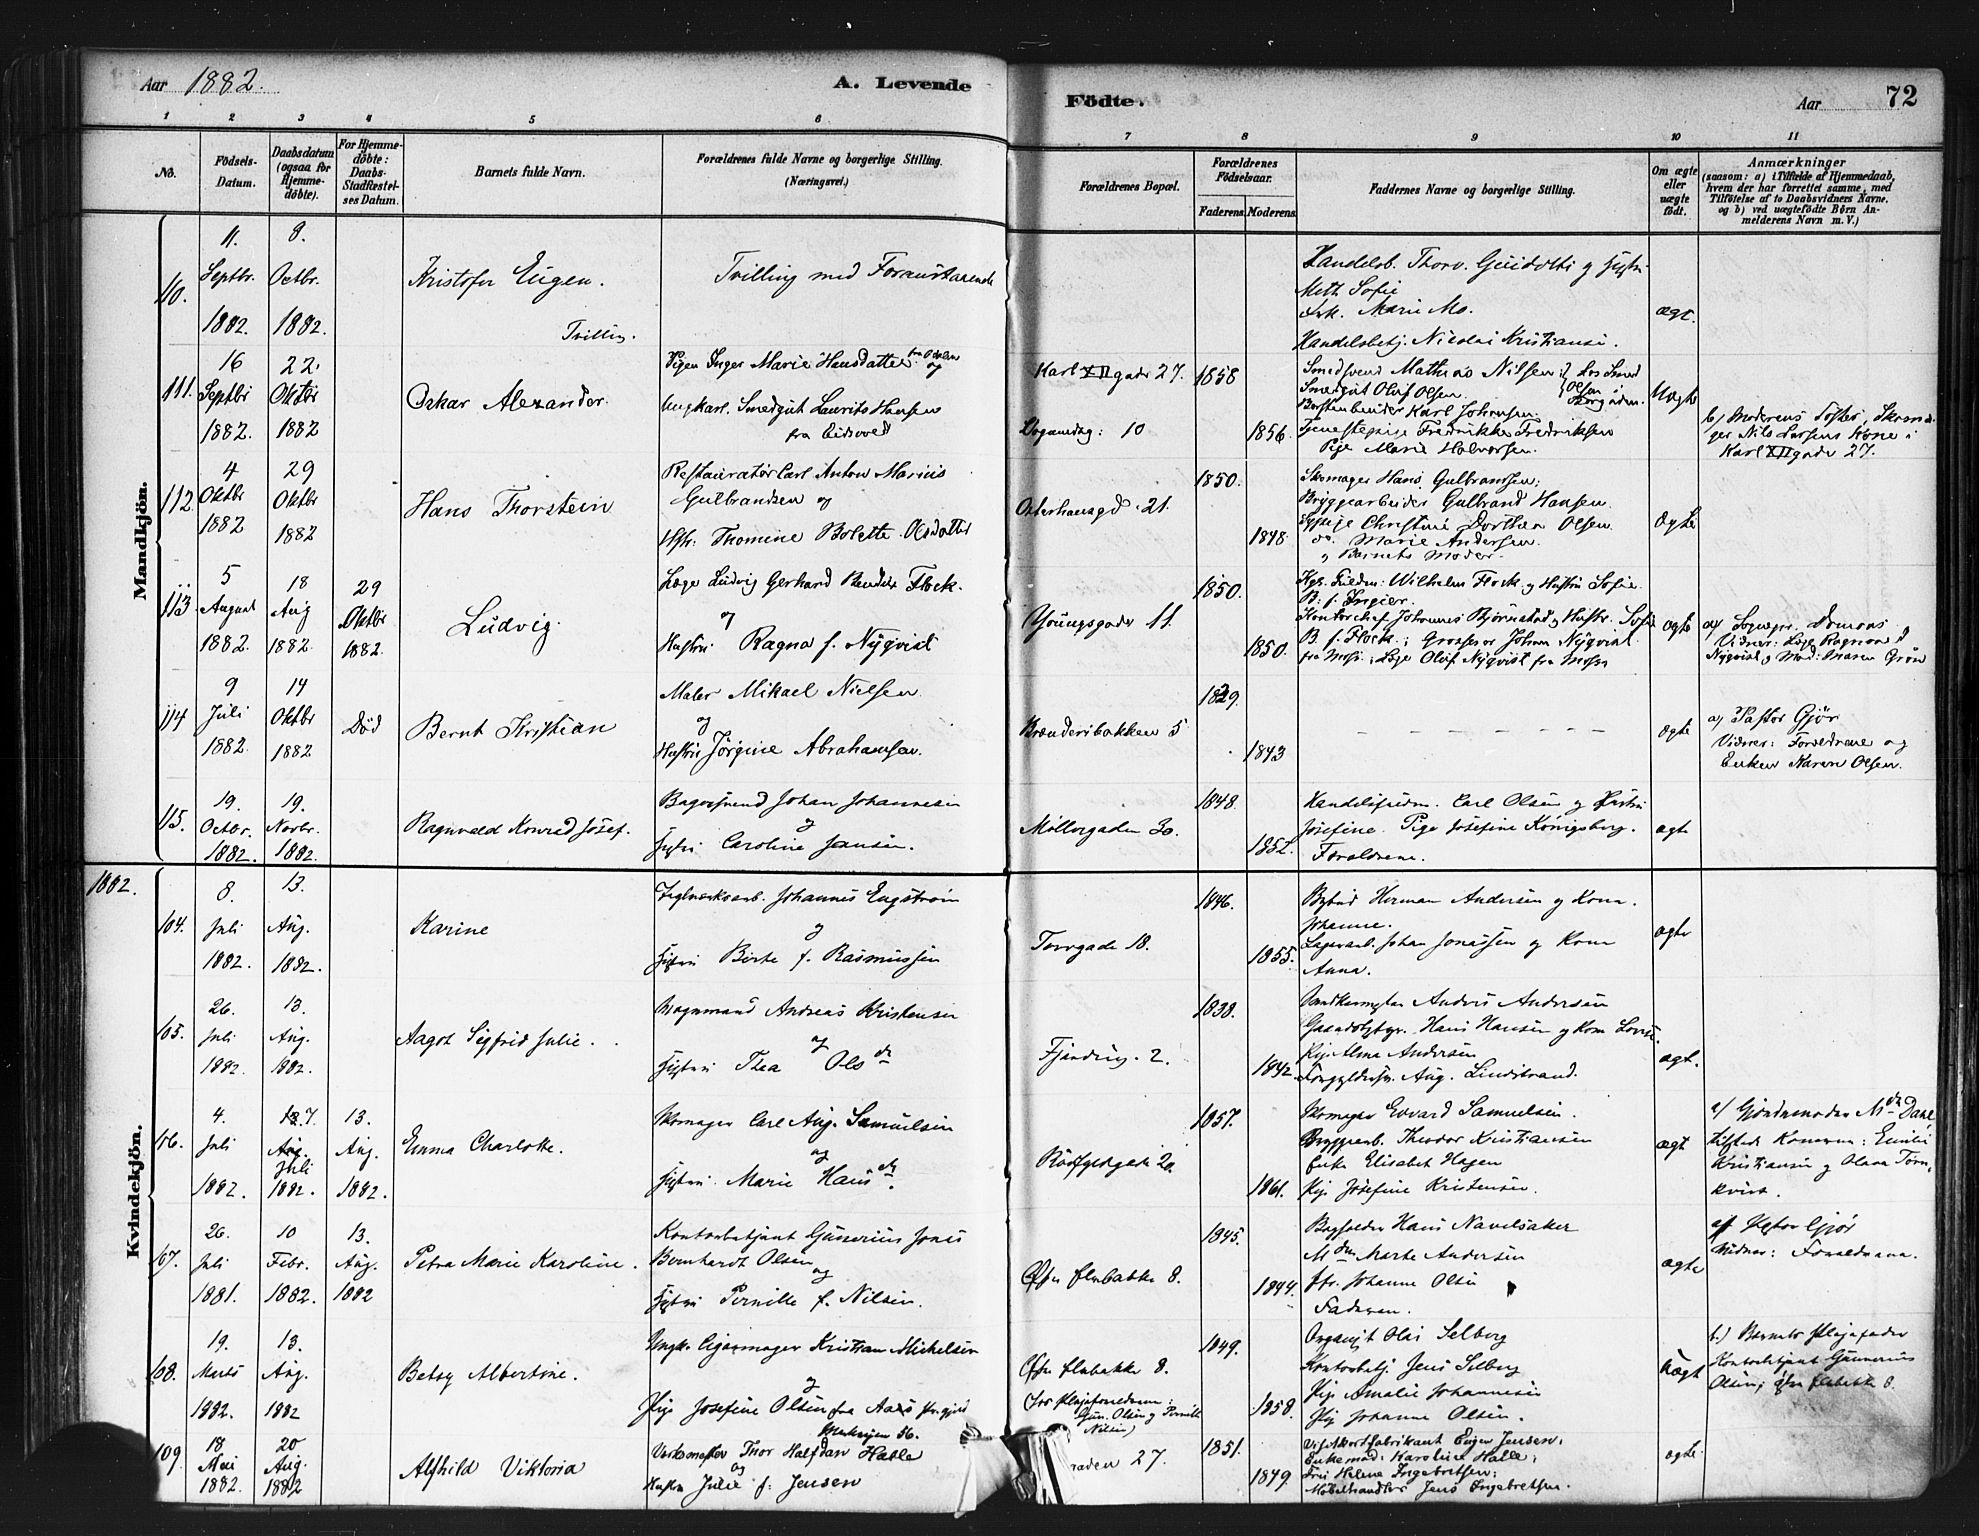 Aar 1882.
A. Levende
Födte.
Aar
72
1
2
3
4
5
6
7
8
9
10
11
No.
Födsels-
Datum.
Daabsdatum
(ogsaa for
Hjemme-
döbte).
For Hjemme-
döbte:
Daabs-
Stadfæstel-
ses Datum.
Barnets fulde Navn.
Forældrenes fulde Navne og borgerlige Stilling.
(Næringsvei.)
Forældrenes Bopæl.
Forældrenes
Födselsaar.
Faderens
Moderens
Faddernes Navne og borgerlige Stilling.
Om ægte
eller
uægte
födt.
Anmærkninger
(saasom: a) i Tilfælde af Hjemmedaab,
hvem der har forrettet samme, med
Tilföielse af to Daabsvidners Navne.
og b) ved uægtefödte Börn An-
melderens Navn m. V.)
Mandkjön.
110.
11.
Septbr.
1882.
8.
Octbr.
1882.
Kristofer Eugen.
Tvilling.
Tvilling med Foranstaaende
Handelsb. Thorv. Guidotti og Hustru
Meth Sofie
Frk. Marie Mo.
Handelsbetj. Nicolai Kristiansi.
ægt.
111.
16
Septbr
1882.
22.
Oktbr
1882
Oskar Alexander.
Pigen Inger Marie Hansdatter fra Odalen
og
Ungkarl. Smedgut Laurits Hansen
fra Eidsvold
Karl XII gade 27.
1858
1856
Smedsvend Mathias Nilsen
Smedgut Oluf Olsen.
Börstenbinder Karl Johansen.
Tjenestepige Fredrikke Fredriksen
Pige Marie Halvorsen.
Uægte
b) Moderens Söster, Skoma-
ger Nils Larsens Kone i
Karl XII gade 27.
112.
4
Oktbr
1882
29
Oktbr
1882
Hans Thorstein
Restauratör Carl Anton Marius
Gulbrandsen og
Hstr: Thomine Bolette Olsdatter
Osterhausgd. 21.
1850.
1848
Skomager Hans Gulbransen;
Bryggearbeider Gulbrand Hansen.
Sypige Christine Dorthea Olsen
do. Marie Andersen.
og Barnets Moder.
ægte
113
5
August
1882.
18
Aug
1882.
29
Oktbr
1882.
Ludvig.
Læge Ludvig Gerhard Bendix Flock.
og
Hustru Ragna f. Nyqvist
Youngsgade 11.
1850.
1850.
Kgs. Fuldm: Wilhelm Flock og Hustru Sofie
B. f. Ingier.
Kontorchef Johannes Björnstad og Hustr. Sofie
B. f. Flock; Grosserer Johan Nyqvist
fra Moss; Læge Oluf Nyqvist fra Moss
ægte
a) Sognepr. Simons
Vidner: Læge Ragnvald
Nyqvist og Mad: Maren Grön
114
9
Juli
1882.
14
Oktbr
1882
Död
Bernt Kristian
Maler Mikael Nielsen
og
Hustru Jörgine Abrahamsen.
Brænderibakken 5
1829.
1843
ægte
a) Pastor Gjör
Vidner: Forældrene og
Enken Maren Olsen.
115.
19.
Octbr.
1882.
19.
Novbr.
1882.
Ragnvald Konrad Josef.
Bagersvend Johan Johannesen
og
Hustru Caroline Jansen.
Möllergaden 30.
1848.
1852.
Handelsfuldm. Carl Olsen og Hustru
Josefine. Pige Josefine Königsberg.
Forældrene.
ægte
1882.
Kvindekjön.
104.
8.
Juli
1882.
13.
Aug.
1882.
Karine
Teglværksarb. Johannes Engström
og
Hustru Birte f. Rasmussen
Torvgade 18.
1846.
1855.
Bybud Herman Andersen og Kone
Johanne.
Lagerarb. Johan Jonassen og Kone
Anna.
ægte
105.
26.
Juli
1882.
13.
Aug.
1882.
Aagot Sigfrid Julie.
Vognmand Andreas Kristensen
og
Hustru Thea Olsdr
Fjerding. 2.
1838.
1842.
Anders Andersen
Hans Hansen og Kone Lovise.
Pige Alma Andersen
Aug. Lindstrand.
ægt.
106.
4.
Juli
1882.
13.7
Aug.
Juli
1882.
13.
Aug.
1882.
Emma Charlotte.
Skomager Carl Aug. Samuelsen
og
Hustru Marie Hansdr.
Rödfyldgade 20.
1857.
1861.
Skomager Edvard Samuelsen.
Bryggearb. Theodor Kristiansen
Enke Elisabet Hagen
Pige Josefine Kristensen.
ægt
a) Gjordemoder Mdm Dahl,
tilstede Konerne: Emilie
Kristiansen og Olava Törn-
kvist.
107.
26.
Juli
1881.
10
Febr.
1882.
13.
Aug.
1882
Petra Marie Karoline.
Kontorbetjent Gunerius Jonis
Bernhardt Olsen
og
Hustru Pernille f. Nilsen.
Öfre Elvebakke 8.
1845.
1844.
Bogholder Hans Navelsaker
Mdm Marte Andersen
Jfr. Johanne Olsen
Faderen.
ægte
a) Pastor Gjör
Vidner: Forældrene.
108.
19.
Marts
1882.
13.
Aug.
1882
Betsy Albertine.
Ungk. Cigarmager Kristian Mickelsen
og
Pige Josefine Olsen fra Aas Prgjeld
Öfre Elvebakke 8.
hos Plejeforældrene:
Gun. Olsen og Pernille
Nilsen)
1849.
1858.
Organist Olai Selberg
Kontorbetj. Jens Selberg
Pige Amalie Johannesen
Pige Johanne Olsen.
Uægt
b.) Barnets Plejefader
Kontorbetjent Gunnerius
Olsen, öfre Elvebakke 8.
109
18
Mai
1882.
20
Aug.
1882
Alfhild Viktoria
Værksmester Thor Halfdan Halle
og
Hustru Julie f: Jensen
raden 27.
1851.
1849
Visitkortfabrikant Eugen Jensen;
Enkemad: Karoline Halle;
Fru Helene Ingebretsen;
Möbelhandler Jens Ingebretsen.
ægte